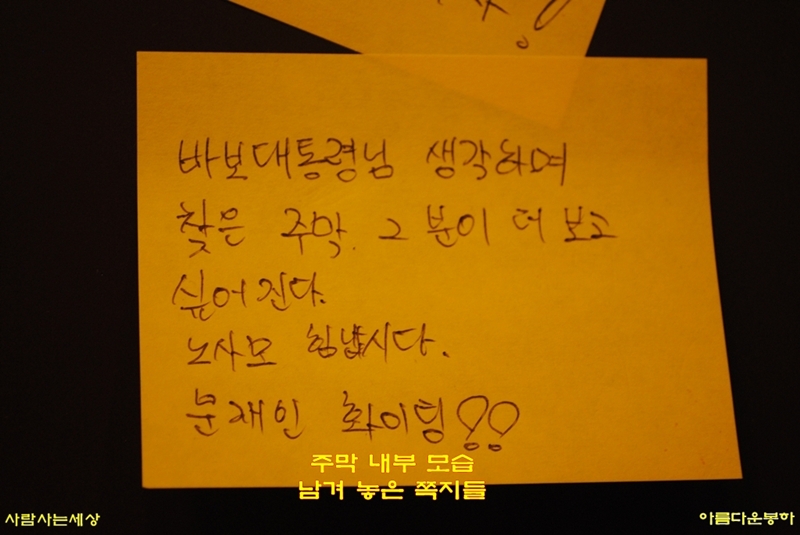 바보대통령님 생각하며
찾은 주막. 그 분이 더 보고
싶어진다.
노사모 힘냅시다.
문재인 화이팅!!
주막 내부 모습
남겨 놓은 쪽지들
사람사는세상
아름다운봉하